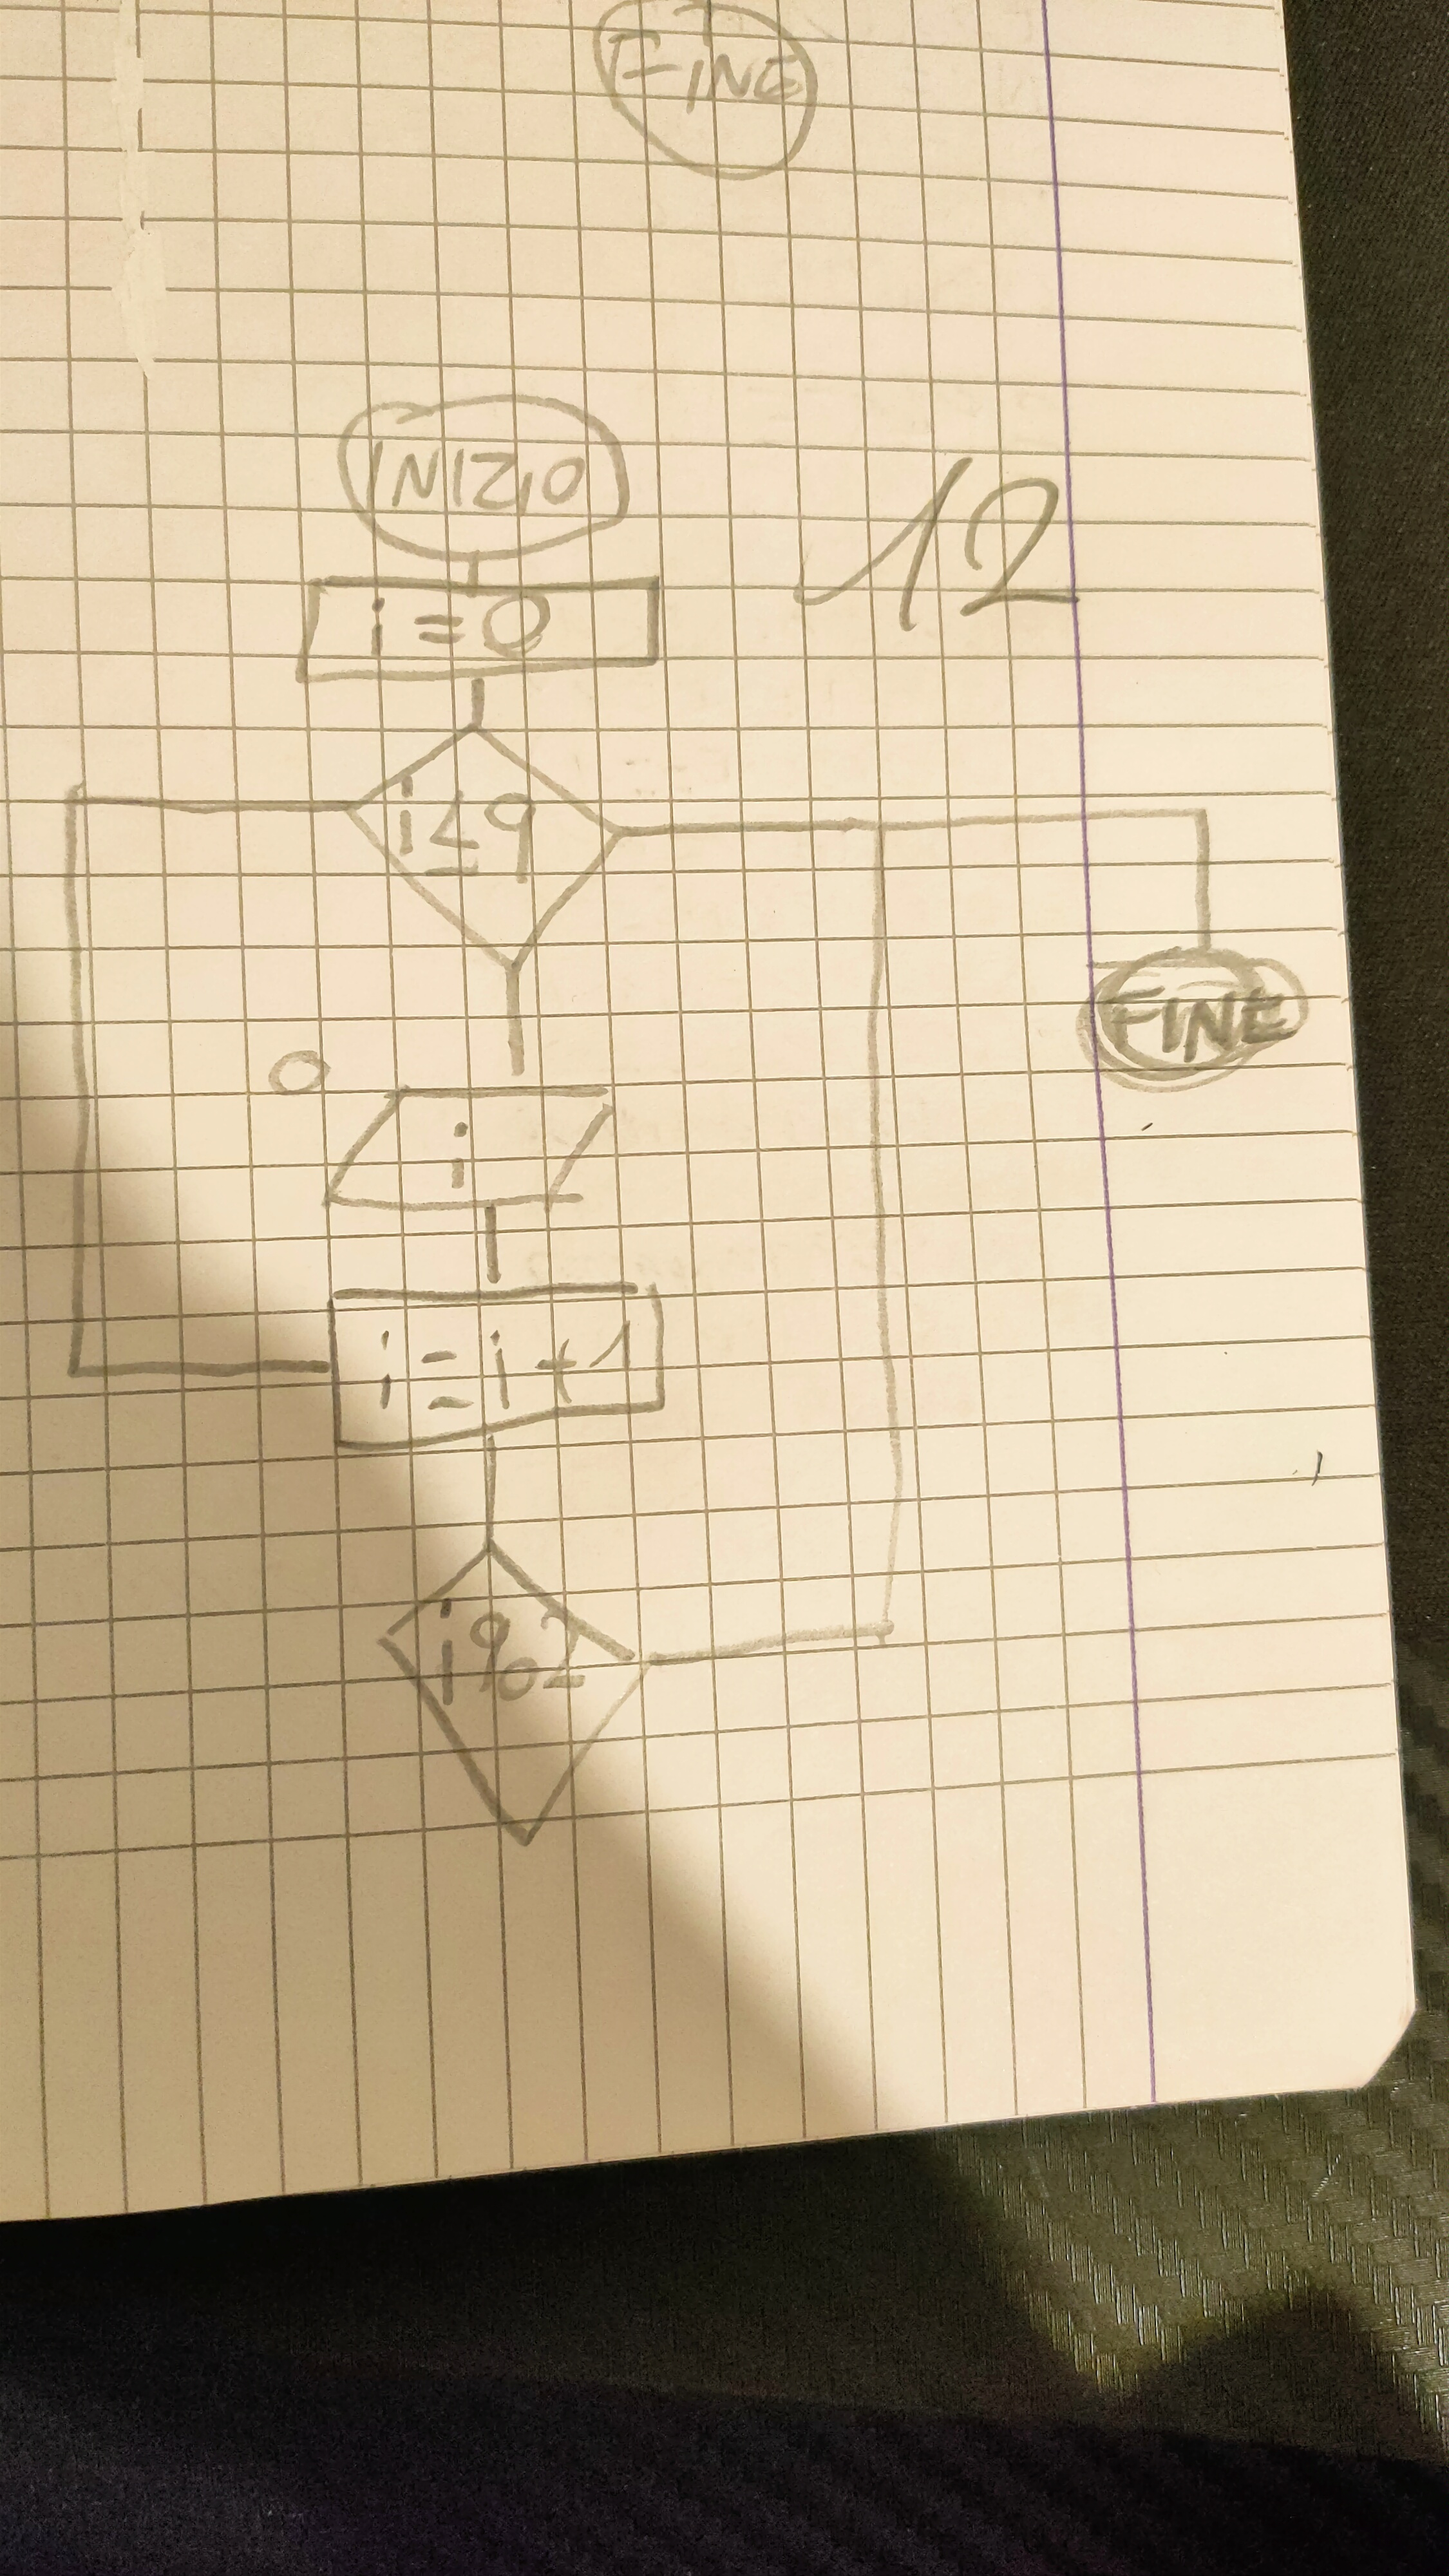 FINE
INIZIO
12
i = 0
i ≤ 9
FINE
O
i
i = i + 1
i%2